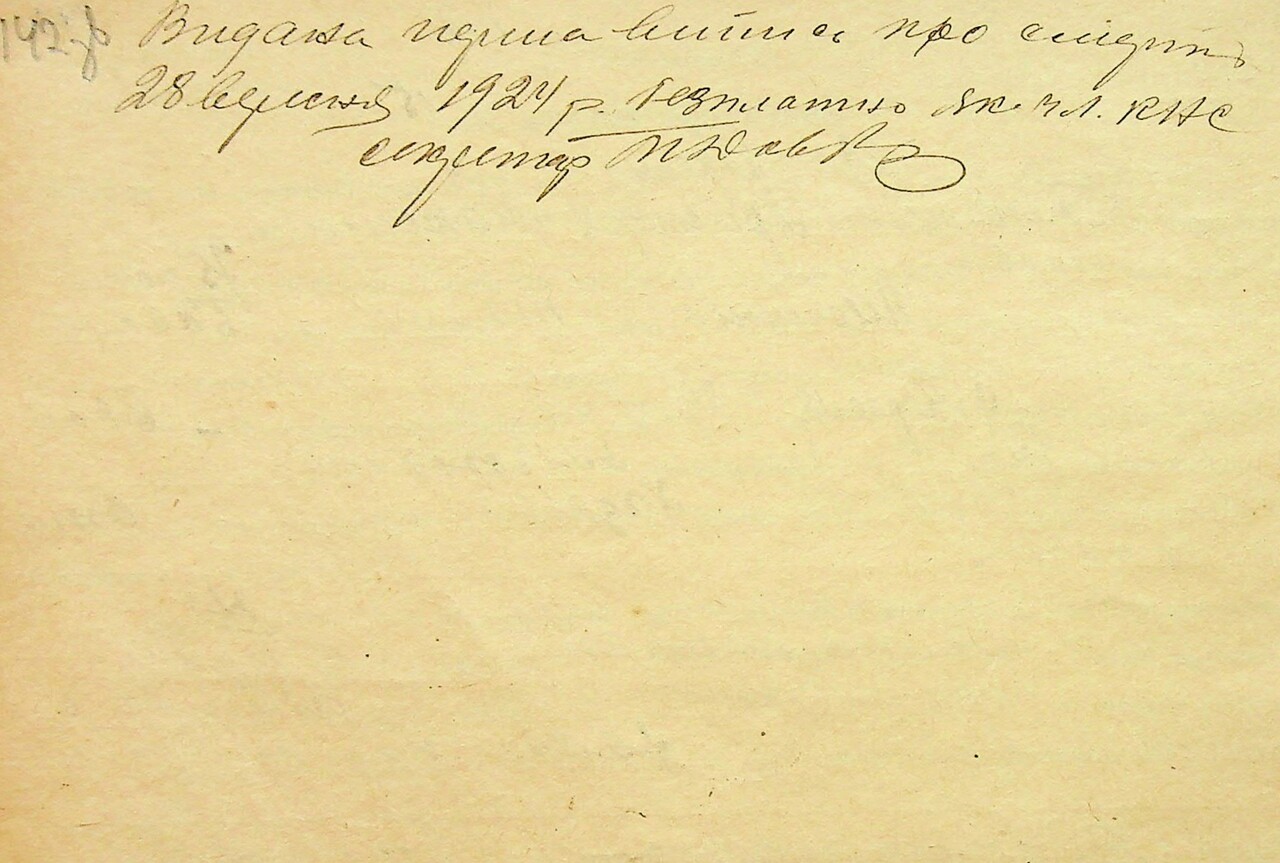 Видана перша витпись про смерть
28 вересня 1924 р. безплатно як чл. КНС
секретар